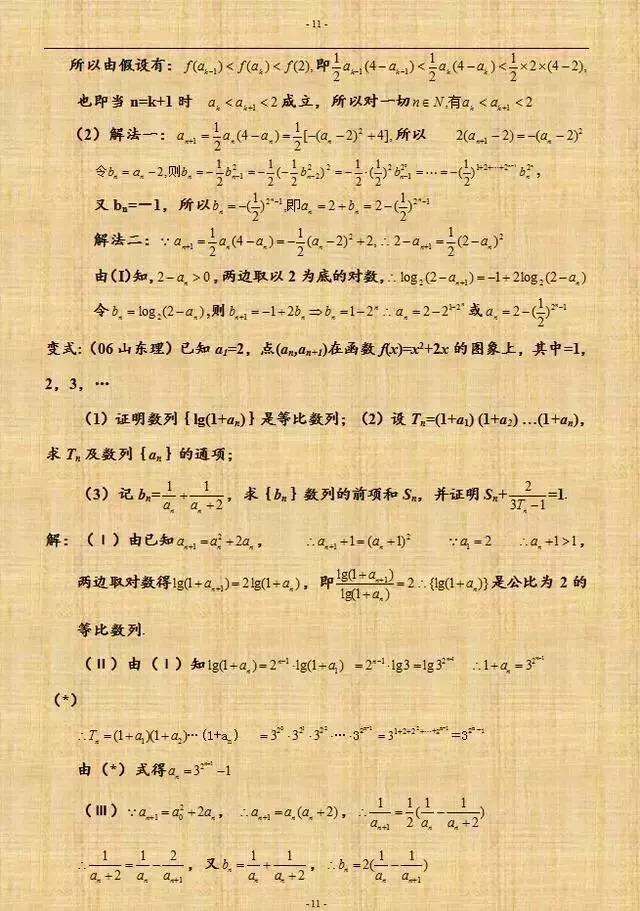 - 11 -
所以由假设有: f(a_{k-1})<f(a_k)<f(2),即\frac{1}{2}a_{k-1}(4-a_{k-1})<\frac{1}{2}a_k(4-a_k)<\frac{1}{2}×2×(4-2),
也即当 n=k+1 时 a_k<a_{k+1}<2 成立，所以对一切n∈N,有a_k<a_{k+1}<2
(2) 解法一: a_{n+1}=\frac{1}{2}a_n(4-a_n)=\frac{1}{2}[-(a_n-2)^2+4],所以 2(a_{n+1}-2)=-(a_n-2)^2
令b_n=a_n-2,则b_n=-\frac{1}{2}b_{n-1}^2=-\frac{1}{2}(-\frac{1}{2}b_{n-2}^2)^2=-\frac{1}{2}·(\frac{1}{2})^2b_{n-1}^{2^2}=⋯=-(\frac{1}{2})^{1+2+⋯+2^{n-1}}b_n^{2^n},
又 b_n=－1，所以b_n=-(\frac{1}{2})^{2^n-1},即a_n=2+b_n=2-(\frac{1}{2})^{2^n-1}
解法二: ∵a_{n+1}=\frac{1}{2}a_n(4-a_n)=-\frac{1}{2}(a_n-2)^2+2,∴2-a_{n+1}=\frac{1}{2}(2-a_n)^2
由(I)知,2-a_n>0，两边取以 2 为底的对数,∴log_2(2-a_{n+1})=-1+2log_2(2-a_n)
令b_n=log_2(2-a_n),则 b_{n+1}=-1+2b_n⇒b_n=1-2^n∴a_n=2-2^{1-2^n}或a_n=2-(\frac{1}{2})^{2^n-1}
变式:(06 山东理)已知 a_1=2，点(a_n,a_{n+1})在函数 f(x)=x^2+2x 的图象上，其中=1，
2，3，⋯
(1) 证明数列{lg(1+a_n)}是等比数列；(2) 设 T_n=(1+a_1) (1+a_2) …(1+a_n)，
求 T_n 及数列{a_n}的通项；
(3) 记 b_n=\frac{1}{a_n}+\frac{1}{a_n+2}，求{b_n}数列的前项和 S_n，并证明 S_n+\frac{2}{3T_n-1}=1.
解: (Ⅰ) 由已知a_{n+1}=a_n^2+2a_n， ∴a_{n+1}+1=(a_n+1)^2 ∵a_1=2 ∴a_n+1>1，
两边取对数得lg(1+a_{n+1})=2lg(1+a_n)，即\frac{lg(1+a_{n+1})}{lg(1+a_n)}=2∴{lg(1+a_n)}是公比为 2 的
等比数列.
(Ⅱ) 由 (Ⅰ) 知lg(1+a_n)=2^{n-1}·lg(1+a_1) =2^{n-1}·lg3=lg3^{2^{n-1}} ∴1+a_n=3^{2^{n-1}}
(*)
∴T_n=(1+a_1)(1+a_2)⋯(1+a_n) =3^{2^0}·3^{2^1}·3^{2^2}·⋯·3^{2^{n-1}}=3^{1+2+2^2+⋯+2^{n-1}}=3^{2^n-1}
由 (*) 式得a_n=3^{2^{n-1}}-1
(Ⅲ) ∵a_{n+1}=a_0^2+2a_n，∴a_{n+1}=a_n(a_n+2)，∴\frac{1}{a_{n+1}}=\frac{1}{2}(\frac{1}{a_n}-\frac{1}{a_n+2})
∴\frac{1}{a_n+2}=\frac{1}{a_n}-\frac{2}{a_{n+1}}，又b_n=\frac{1}{a_n}+\frac{1}{a_n+2}，∴b_n=2(\frac{1}{a_n}-\frac{1}{a_{n+1}})
- 11 -